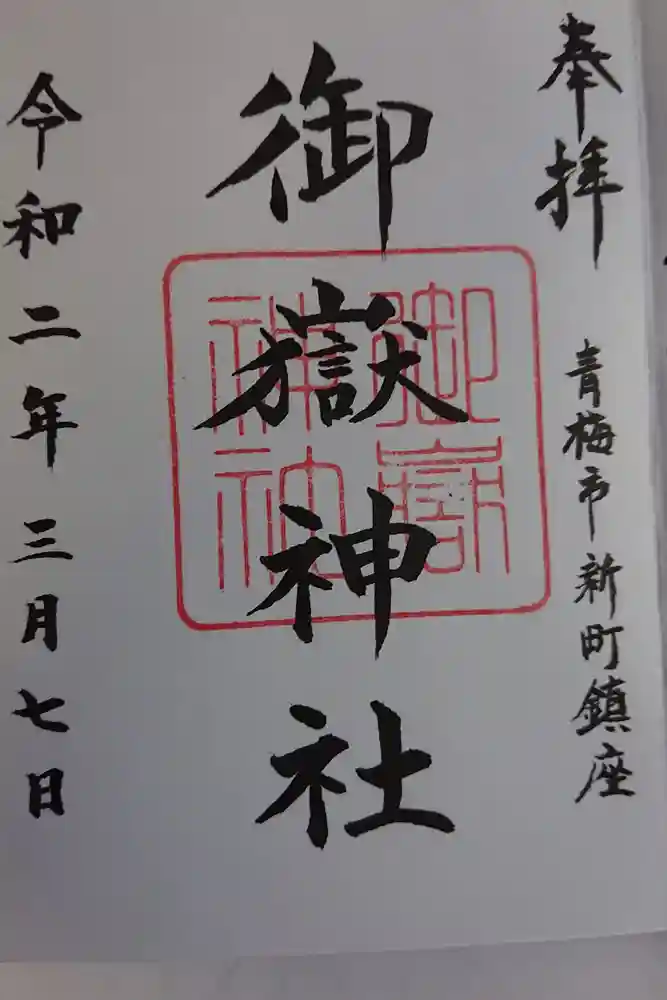 奉拝
青梅市新町鎮座
御嶽神社
御嶽
神社
令和二年三月七日